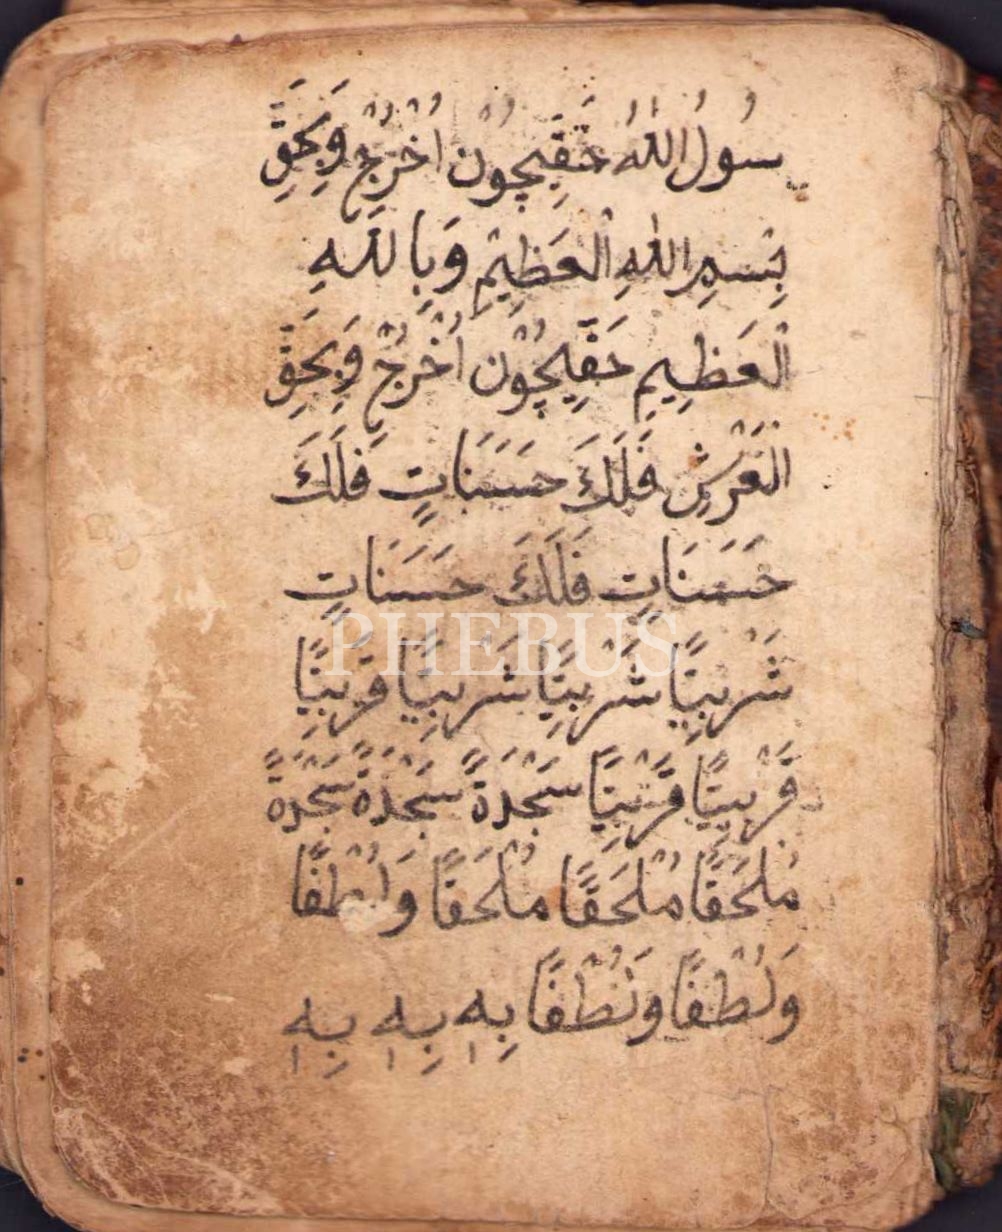 سُولُ اللّٰهُ حَقِّيچُوْن اُخْرُجْ وَبِحَقِّ
بِسْمِ اللّٰهِ الْعَظِيْمِ وَبِاللّٰهِ
الْعَظِيمِ حَقِّيچُوْن اُخْرُجْ وَبِحَقِّ
الْعَرْشِ فَلَكَ حَسَنَاتٍ فَلَكَ
حَسَنَاتٍ فَلَكَ حَسَنَاتٍ
PHEBUS
شَرْبِيًّا شَرْبِيًّا شَرْبِيًّا قَرْبِيًّا
قَرْبِيًّا قَرْبِيًّا سَجْدَةً سَجْدَةً سَجْدَةً
مُلْحَقًا مُلْحَقًا مُلْحَقًا وَلُطْفًا
وَلُطْفًا وَلُطْفًا بِهٖ بِهٖ بِهٖ